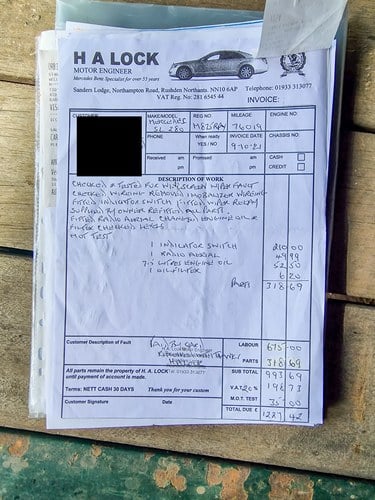 H A LOCK
MOTOR ENGINEER
Mercedes Benz Specialist for over 55 years
Sanders Lodge, Northampton Road, Rushden Northants. NN10 6AP Telephone: 01933 313077
VAT Reg. No: 281 6545 44
INVOICE:
CUSTOMER
MAKE/MODEL REG NO MILEAGE
MERCEDES
SL 280 76019
PHONE When ready INVOICE DATE CHASSIS NO:
YES / NO 9-10-21
Received am Promised am CASH
pm pm CREDIT
DESCRIPTION OF WORK
CHECKED & TESTED FOR WINDSCREEN WIPER FAULT
CHECKED WIRING REMOVED IMOBALIZER WIRING
FITTED INDICATOR SWITCH FITTED WIPER RELAY
SUPPLIED BY OWNER REFITTED ALL PARTS
FITTED RADIO AERIAL CHANGED ENGINE OIL &
FILTER CHECKED
MOT TEST
1 INDICATOR SWITCH 210 00
1 RADIO AERIAL 49 99
7.5 LITRES ENGINE OIL 52 50
1 OIL FILTER 6 20
PARTS 318 69
Customer Description of Fault
LABOUR 675 00
PARTS 318 69
All parts remain the property of H. A. LOCK
until payment of account is made.
SUB TOTAL 993 69
V.A.T 20% 198 73
Terms: NETT CASH 30 DAYS Thank you for your custom
M.O.T. TEST 35 00
Customer Signature Date
TOTAL DUE £ 1227 42